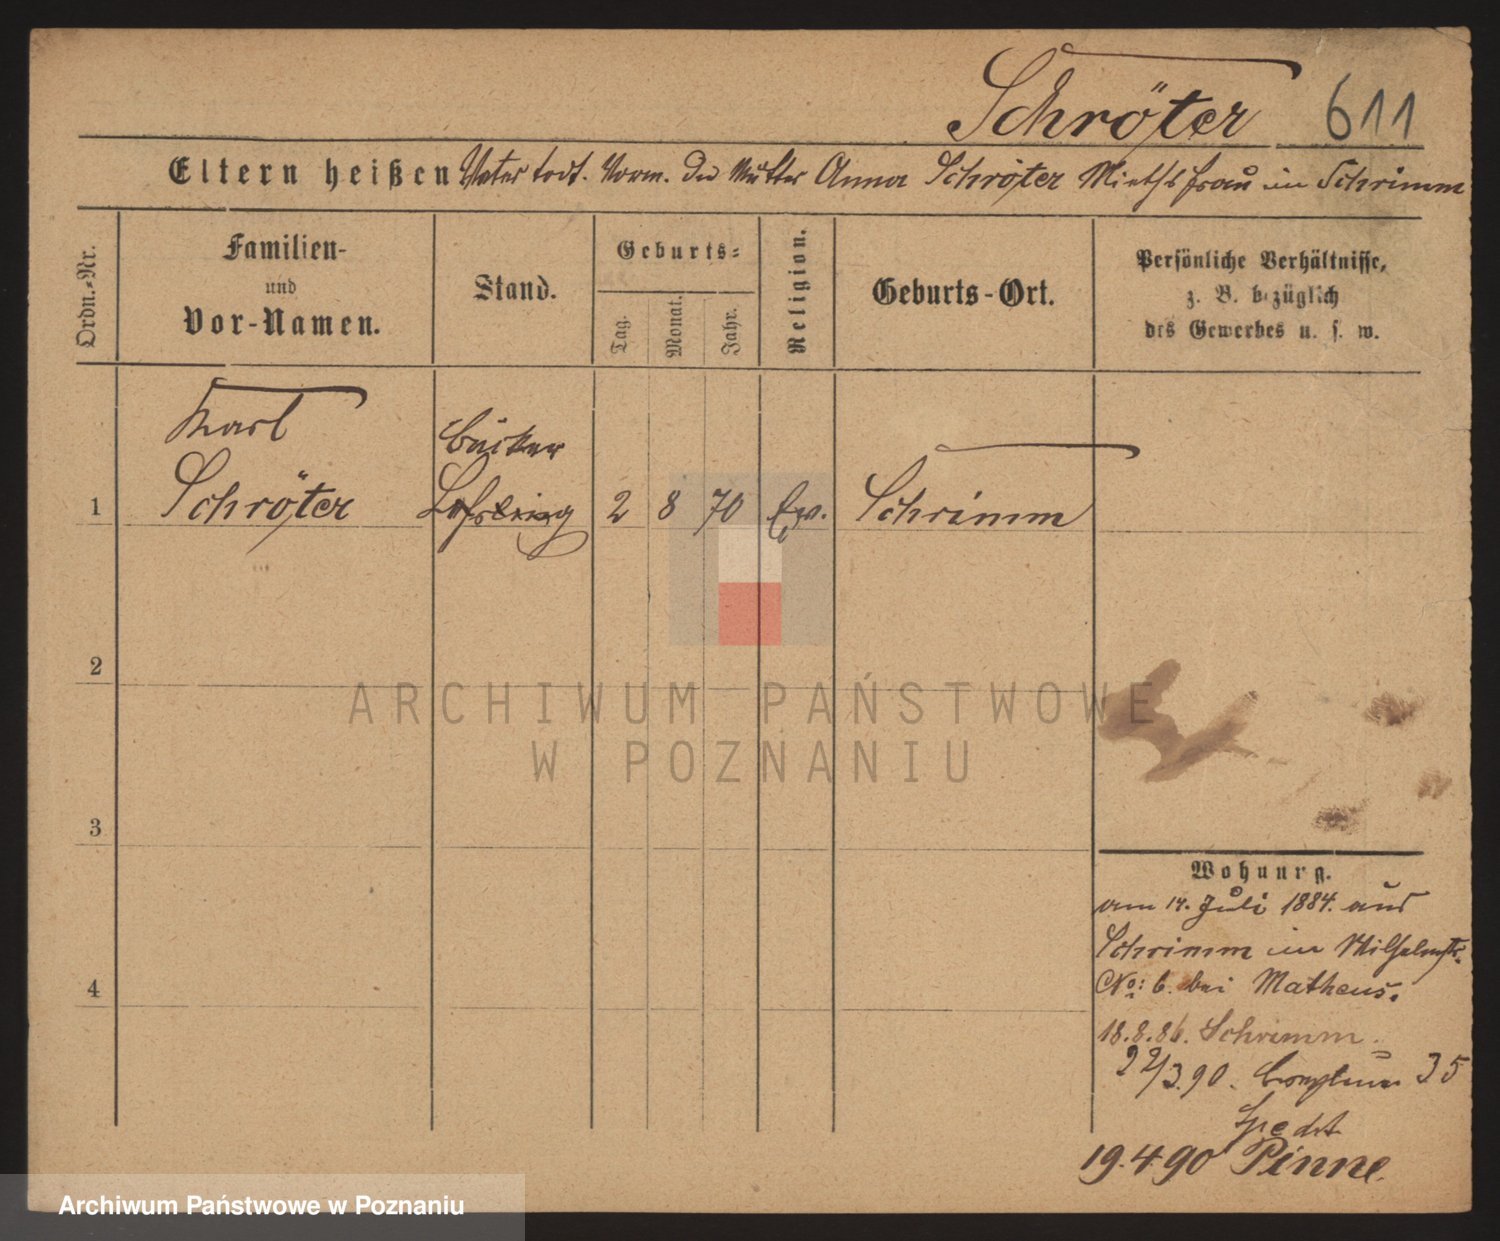 Schröter 611
Eltern heißen Vater todt. Vorm. die Mutter Anna Schröter Miethsfrau in Schrimm
Ordn.-Nr.
Familien-
und
Vor-Namen.
Stand.
Geburts-
Tag.
Monat.
Jahr.
Religion.
Geburts-Ort.
Persönliche Verhältnisse,
z. B. bezüglich
des Gewerbes u. s. w.
Karl
Schröter
Bäcker
Lehrling
1
2 8 70 Ev. Schrimm
2
3
4
ARCHIWUM PAŃSTWOWE
W POZNANIU
Wohnung.
am 14. Juli 1884. aus
Schrimm in Wilhelmstr.
No: 6. bei Matheus.
18.8.86. Schrimm.
22/3.90. 35
19.4.90 Pinne.
Archiwum Państwowe w Poznaniu